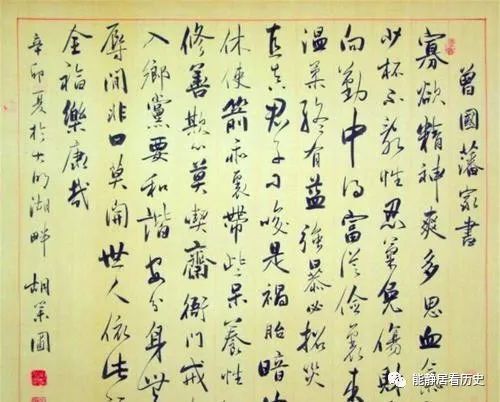 曾國藩家書
寡欲精神爽多思血氣
少杯不亂性忍氣免傷財
向勤中得富從儉裏來
溫柔終有益強暴必招災
直真君子刁唆是禍胎暗
休使箭乖裏帶些呆養性
修善欺心莫喫齋衙門戒
入鄉黨要和諧安分身無
辱閒非口莫開世人依此
全福樂康哉
辛卯夏於大明湖畔 胡 國
能静居看历史